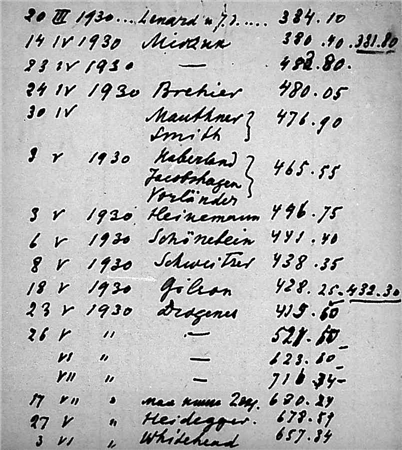 20 III 1930 .... Lenard u 384.10
14 IV 1930 380.40. 381.80
23 IV 1930 — 482.80.
24 IV 1930 Brehier 480.05
30 IV Mauthner
Smith } 476.90
3 V 1930 Haberland
Jacobshagen } 465.55
Vorländer
3 V 1930 Heinemann 446.75
6 V 1930 Schönebein 441.40
8 V 1930 Schweitzer 438.35
18 V 1930 Gilson 428.25. 432.30
23 V 1930 Diogenes 419.60
26 V " — 521.60
VI " — 623.60
VII " — 716.34
17 VII " 680.24
27 V " Heidegger. 678.84
3 VI " Whitehead 657.84